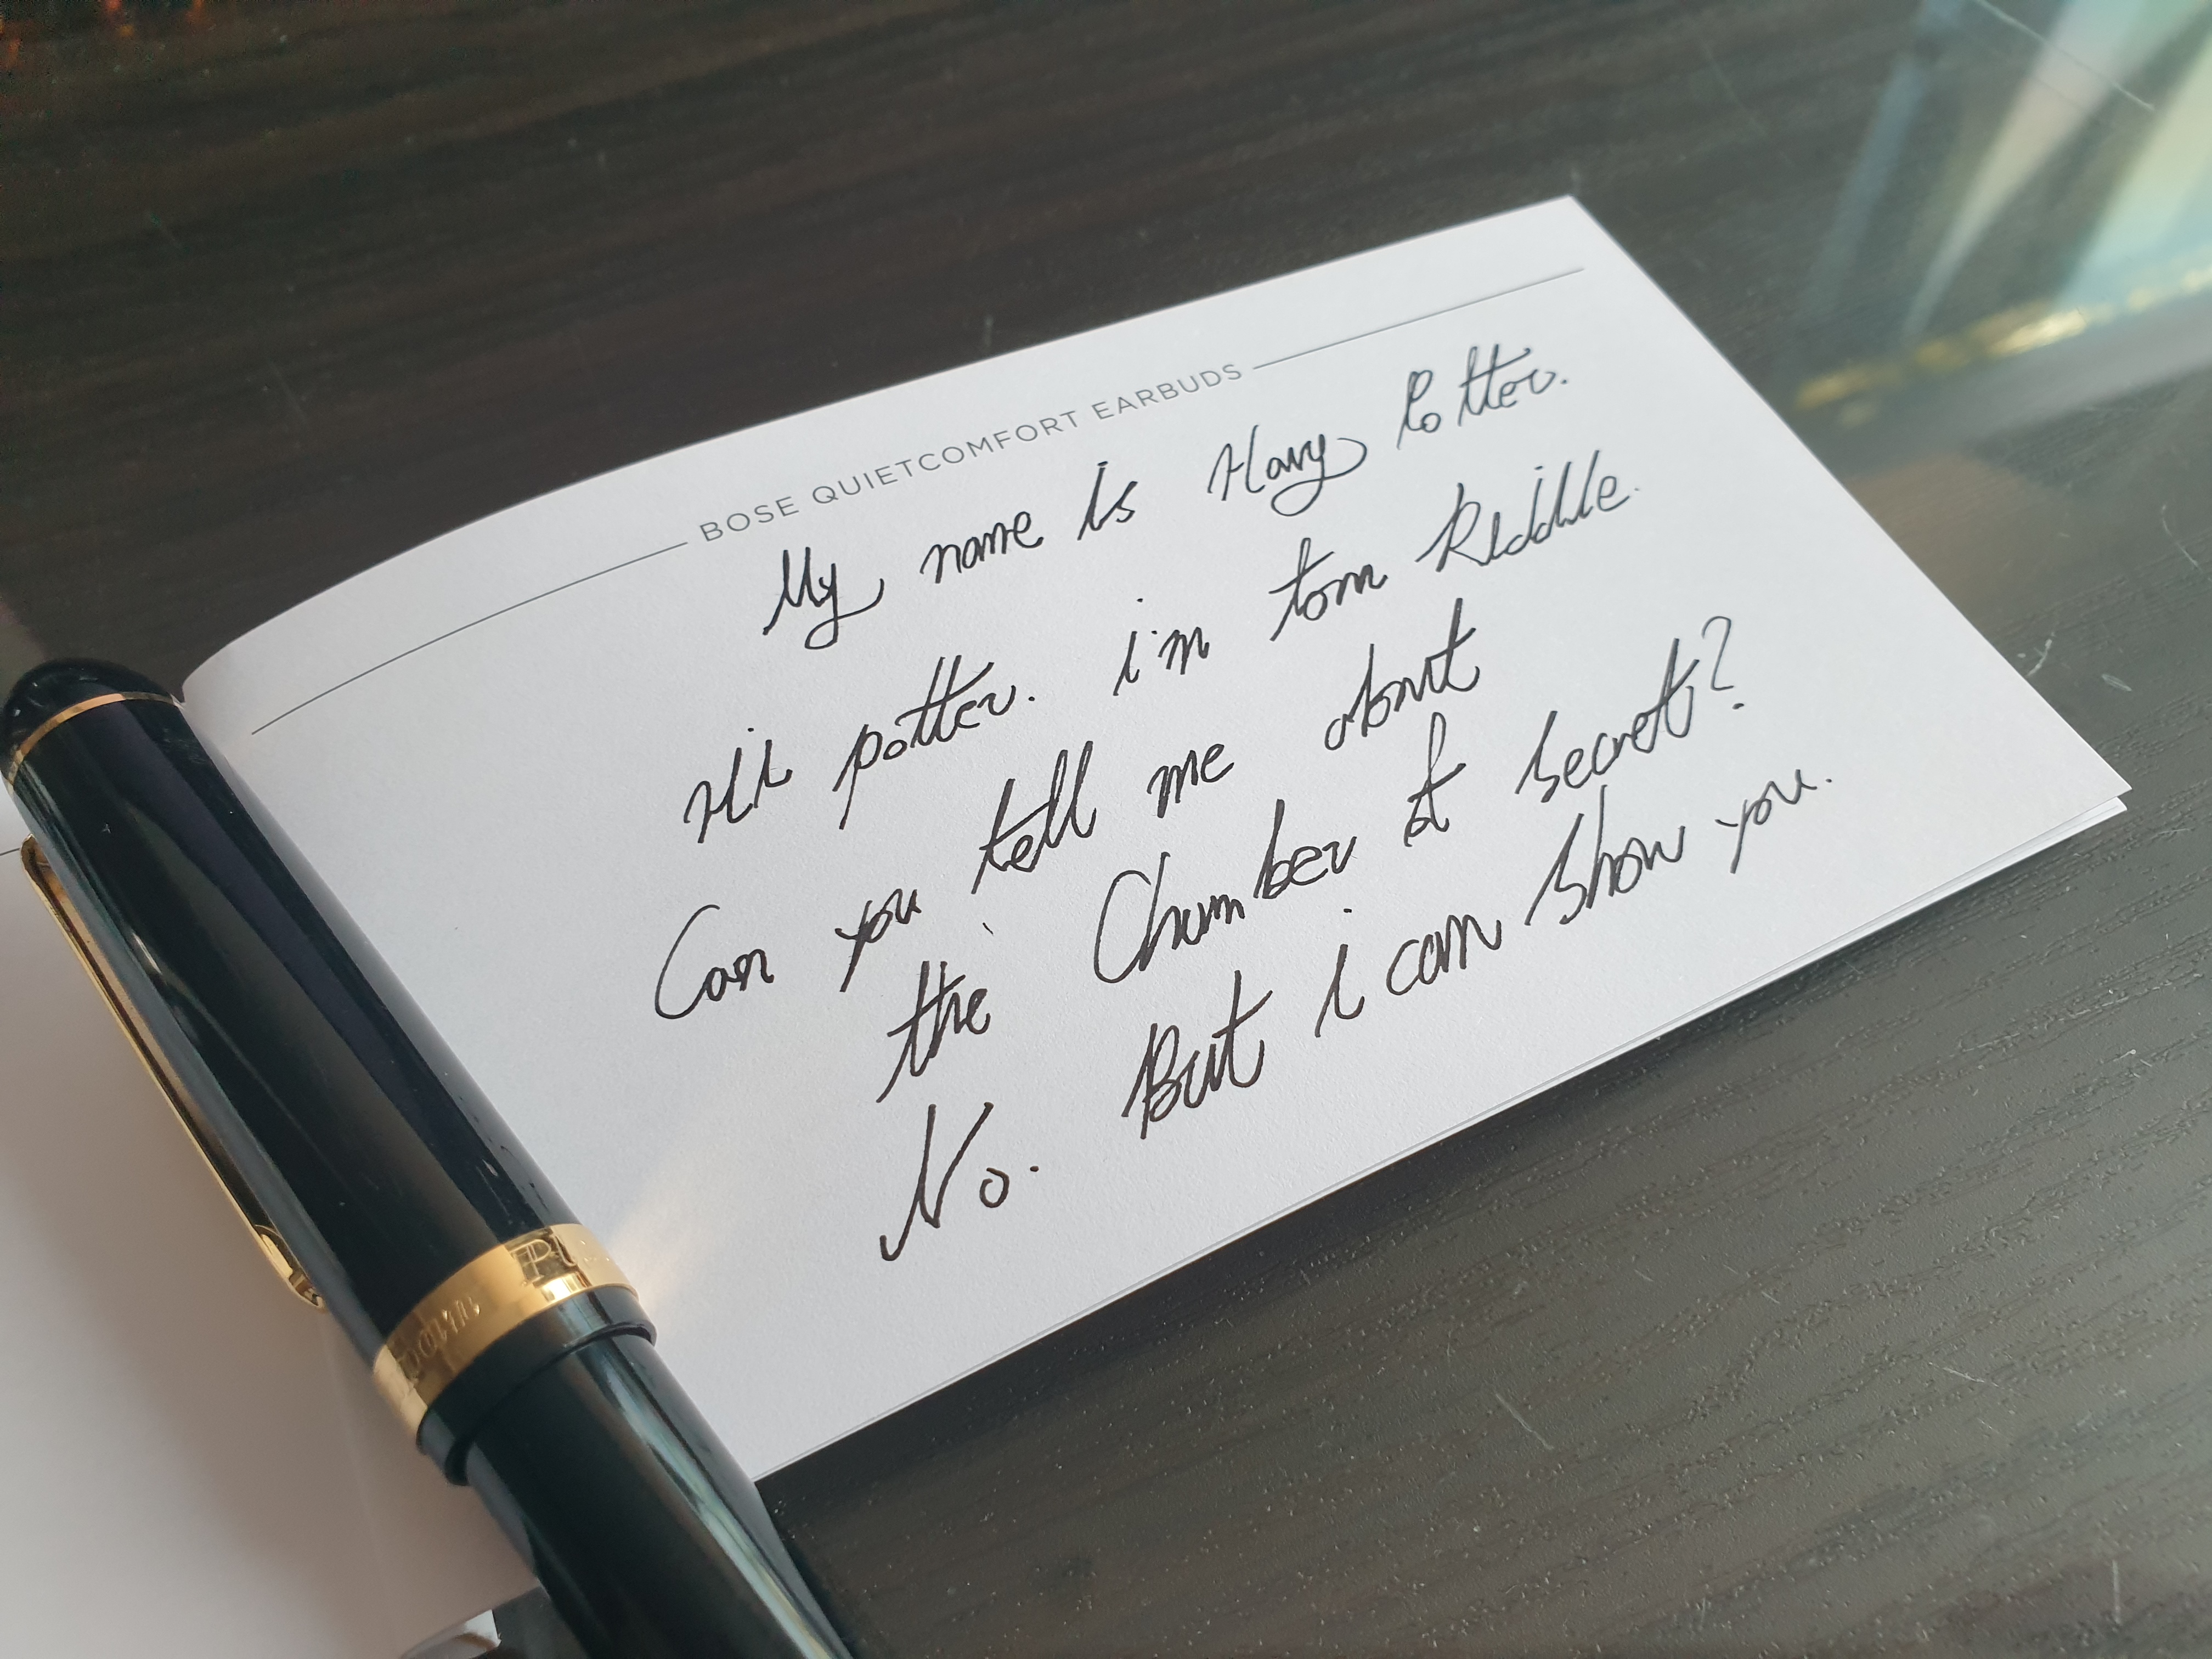 BOSE QUIETCOMFORT EARBUDS
My name is Harry Potter.
Hi potter. i'm tom Riddle.
Can you tell me about
the Chamber of secret?
No. But i can show you.